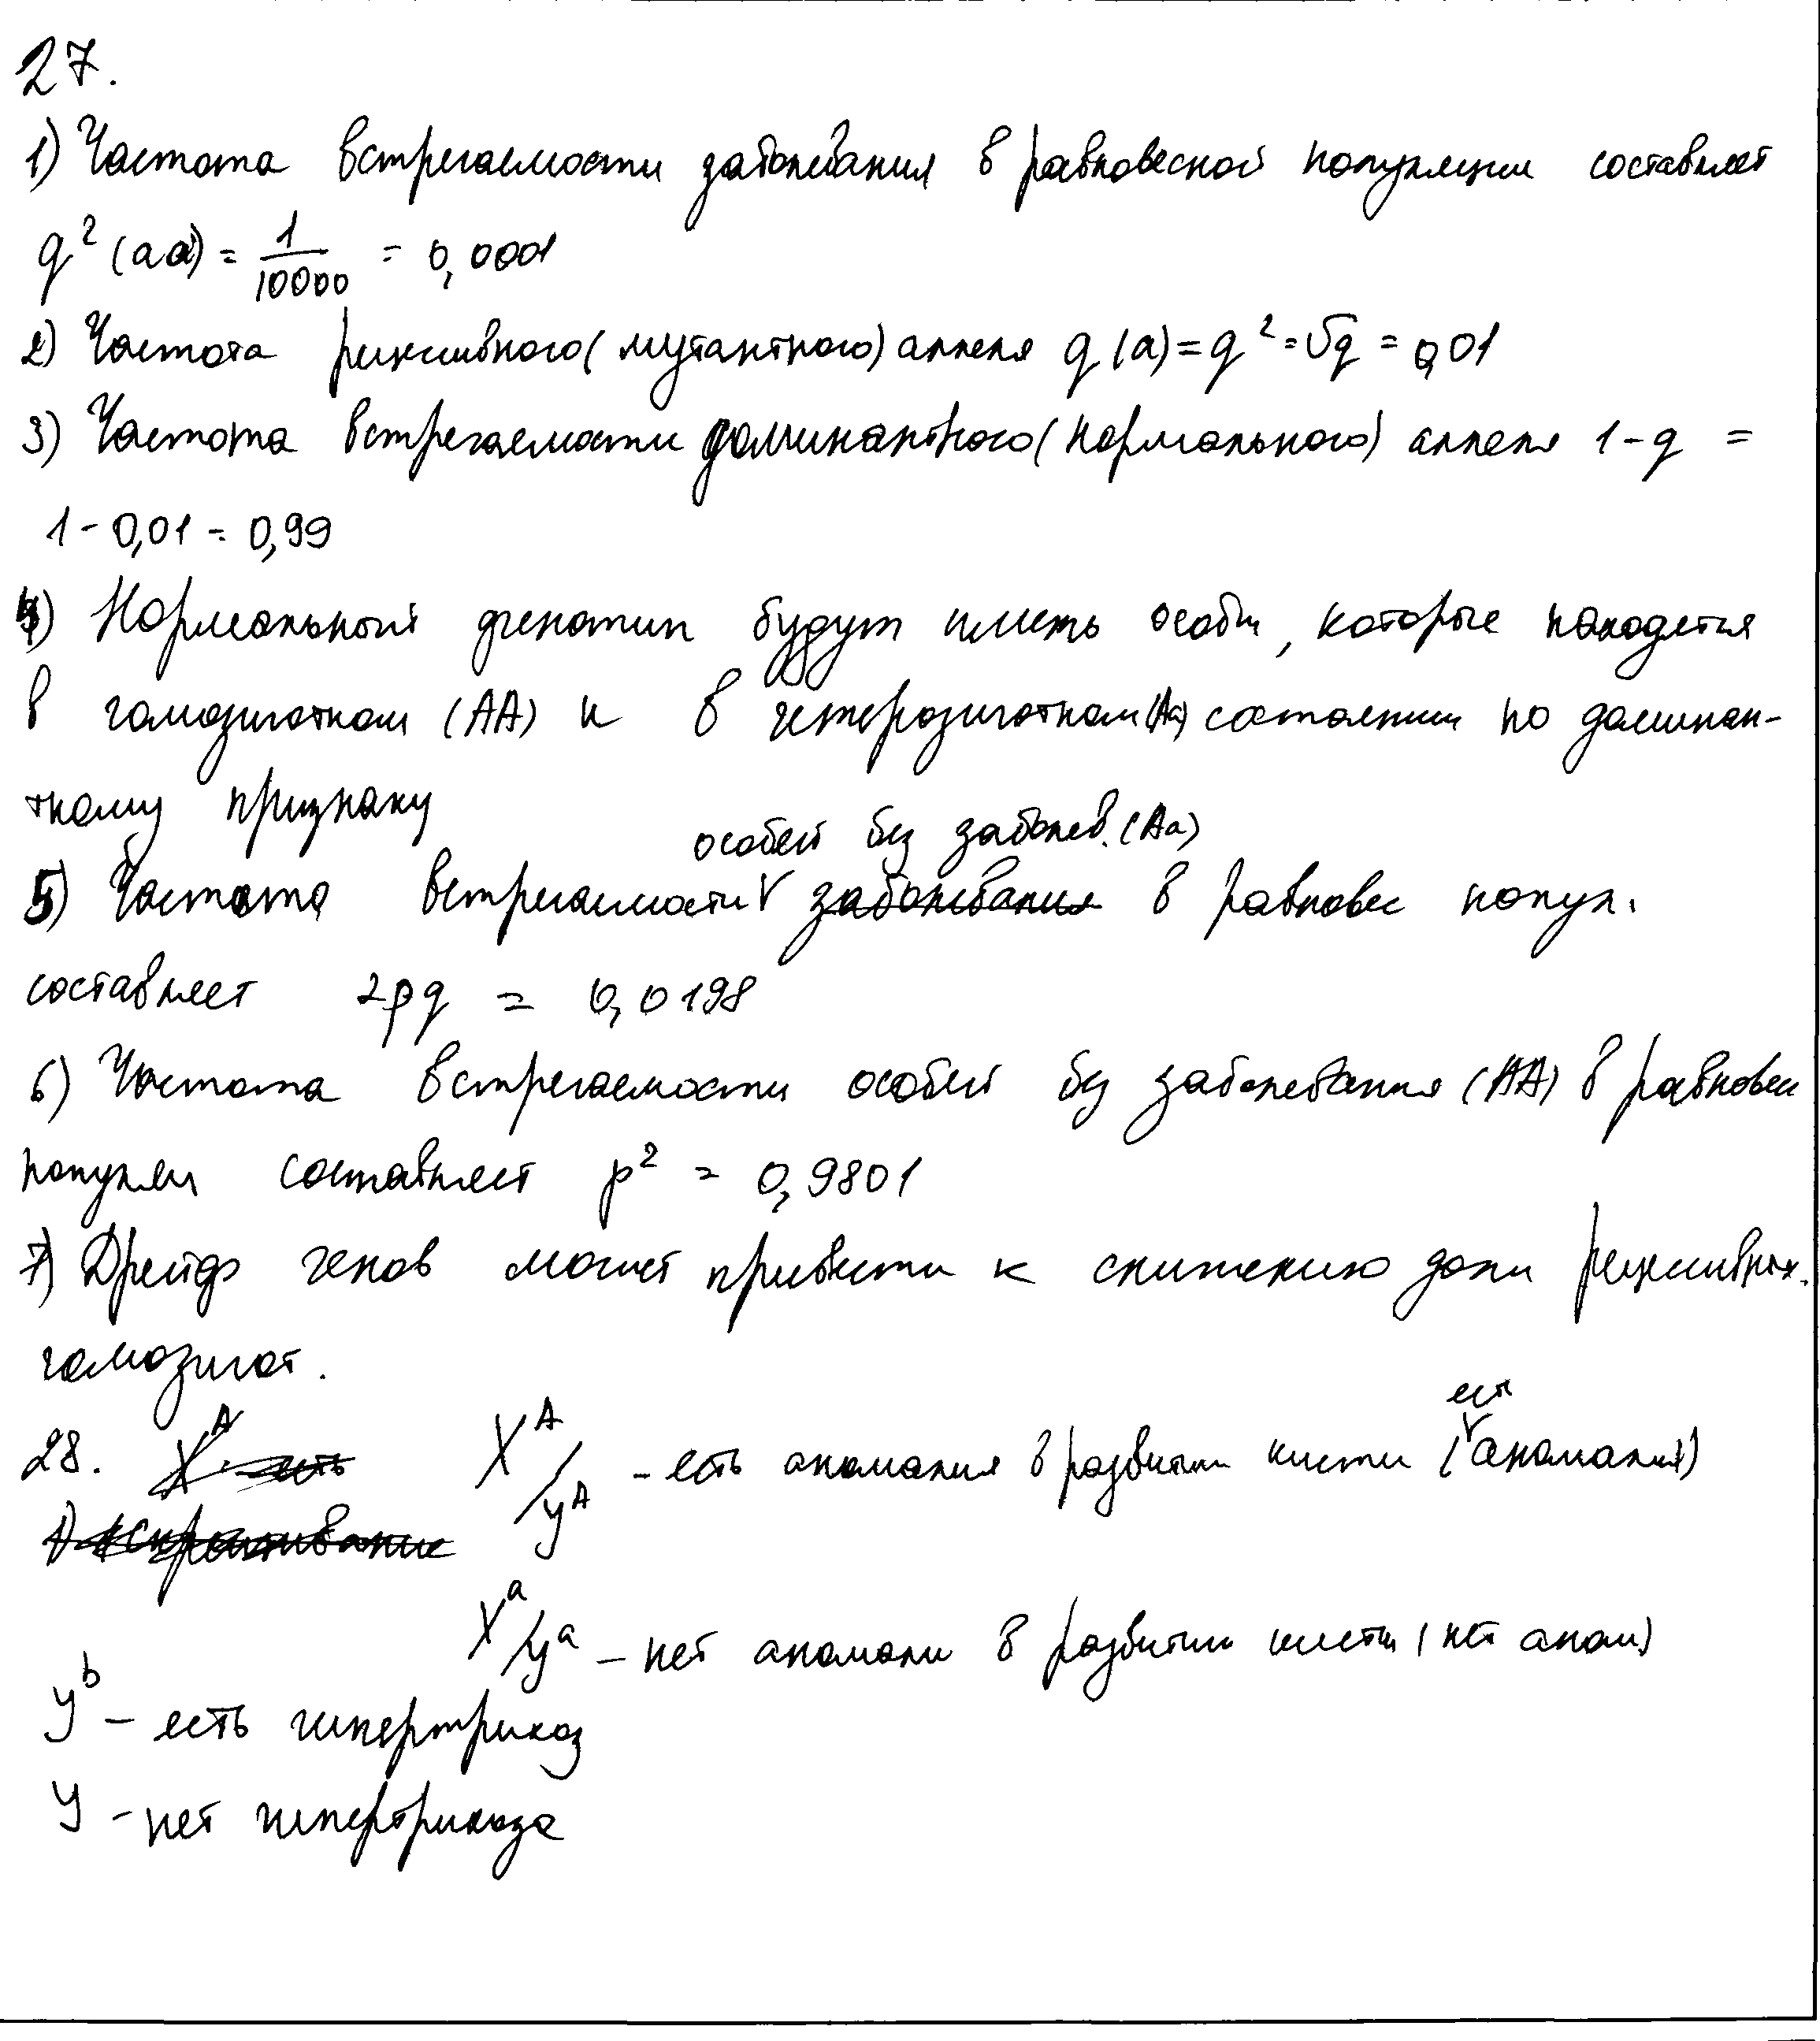 27.
1) Частота встречаемости заболевания в равновесной популяции составляет
q² (aa) = 1/10000 = 0,0001
2) Частота рецессивного (мутантного) аллеля q (a) = q² = √q = 0,01
3) Частота встречаемости доминантного (нормального) аллеля 1 - q =
1 - 0,01 = 0,99
4) Нормальный фенотип будут иметь особи, которые находятся
в гомозиготном (AA) и в гетерозиготном (Aa) состоянии по доминан-
тному признаку
особей без заболев. (Aa)
5) Частота встречаемости V заболевания в равновес попул.
составляет 2pq = 0,0198
6) Частота встречаемости особей без заболевания (AA) в равновес
популяц составляет p² = 0,9801
7) Дрейф генов может привести к снижению доли рецессивных
гомозигот.
ест
28. X^A - есть X^A/y^A - есть аномалия в развитии кисти (V аномалия)
1) скрещивание
X^a/y^a - нет аномали в развитии кисти (нет аном)
y^b - есть гипертрихоз
y - нет гипертрихоза